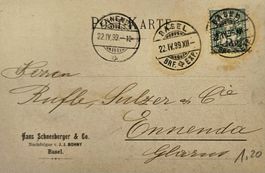 POSTKARTE
ENNENDA
22.IV.99.-10-
BASEL
22.IV.99.XII-
BRF. EXP.
BASEL
Herren
Rufli, Sulzer & Cie
Ennenda
Glarus
Hans Schneeberger & Co.
Nachfolger v. J. J. BOHNY
Basel.
1.20